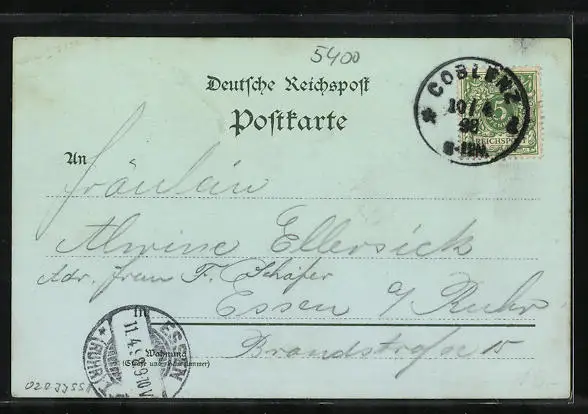 5400
Deutsche Reichspost
Postkarte
COBLENZ
10/4
98
8-12N.
5
REICHSPOST
An
Fräulein
Alwine Ellersiek
Adr. frau F. Schäfer
in Essen a/ Ruhr
Wohnung
(Straße und Hausnummer)
Brandstraße 15
ESSEN
11.4.
(RUHR)